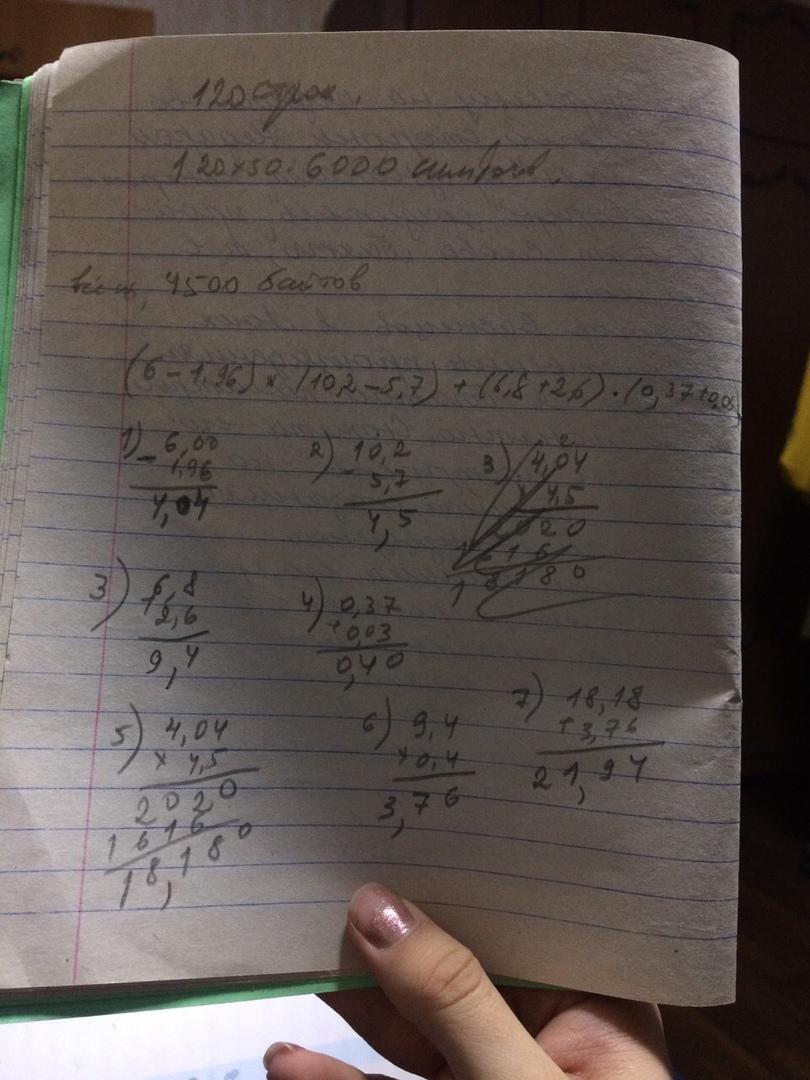 120 строк.
120×50=6000 символов.
4500 байтов
(6-1,96)×(10,2-5,7)+(6,8+2,6)·(0,37+0,0
1) 6,00
- 1,96
4,04
2) 10,2
- 5,7
4,5
3) 4,04
2
× 4,5
2020
1616
18180
3) 6,8
+ 2,6
9,4
4) 0,37
+ 0,03
0,40
5) 4,04
× 4,5
2020
1616
18,180
6) 9,4
× 0,4
3,76
7) 18,18
+ 3,76
21,94